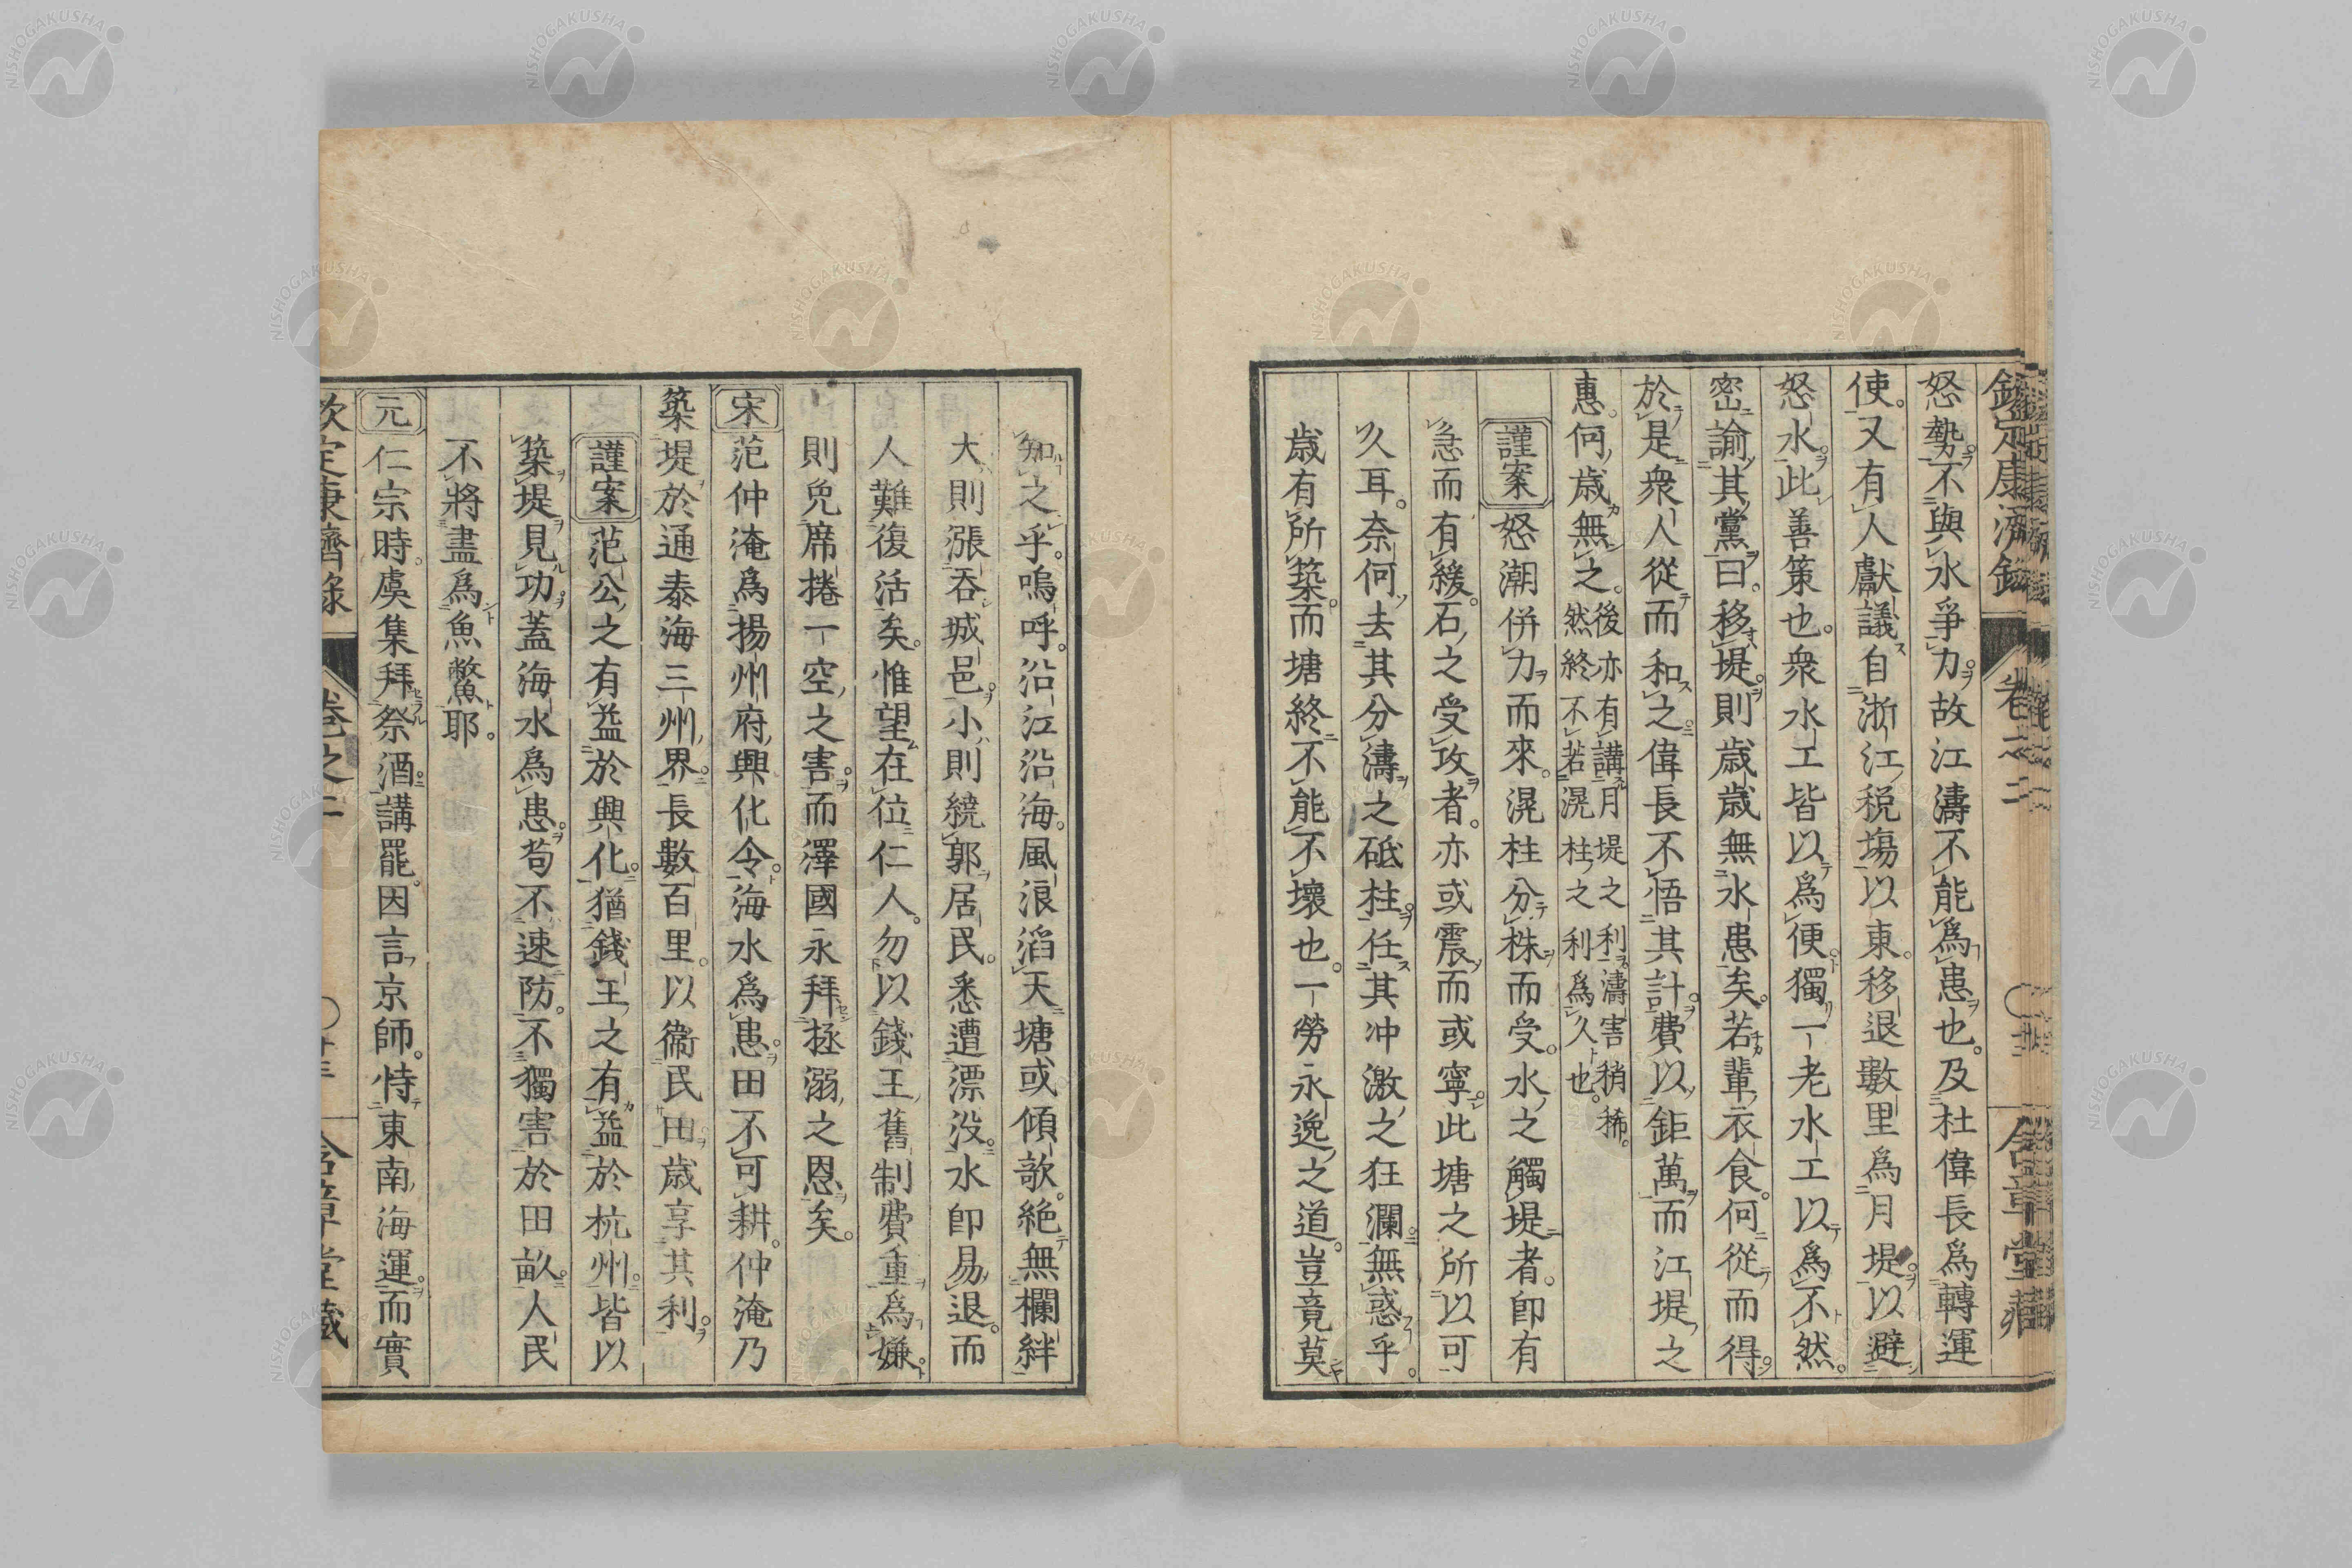 怒勢。不與水爭力。故江濤不能爲患也。及杜偉長爲轉運
使。又有人獻議自浙江稅塲以東。移退數里爲月堤。以避
怒水。此善策也。衆水工皆以爲便。獨一老水工以爲不然。
密諭其黨曰。移堤則歲歲無水患矣。若輩衣食。何從而得。
於是衆人從而和之。偉長不悟其計。費以鉅萬。而江堤之
惠。何歲無之。後亦有講月堤之利。濤害稍稀。然終不若滉柱之利爲久也。
謹案 怒潮併力而來。滉柱分株而受。水之觸堤者。卽有
急而有緩。石之受攻者。亦或震而或寧。此塘之所以可
久耳。奈何去其分濤之砥柱。任其冲激之狂瀾。無惑乎。
歲有所築。而塘終不能不壞也。一勞永逸之道。豈竟莫
知之乎。嗚呼。沿江沿海。風浪滔天。塘或傾欹。絕無欄絆
大則漲吞城邑。小則繞郭居民。悉遭漂沒。水卽易退。而
人難復活矣。惟望在位仁人。勿以錢王舊制費重爲嫌。
則免席捲一空之害。而澤國永拜拯溺之恩矣。
宋 范仲淹爲揚州府興化令。海水爲患。田不可耕。仲淹乃
築堤於通泰海三州界。長數百里。以衞民田。歲享其利。
謹案 范公之有益於興化。猶錢王之有益於杭州。皆以
築堤見功。蓋海水爲患。苟不速防。不獨害於田畝。人民
不將盡爲魚鱉耶。
元 仁宗時。虞集拜祭酒。講罷。因言京師。恃東南海運。而實
欽定康濟錄 卷之二